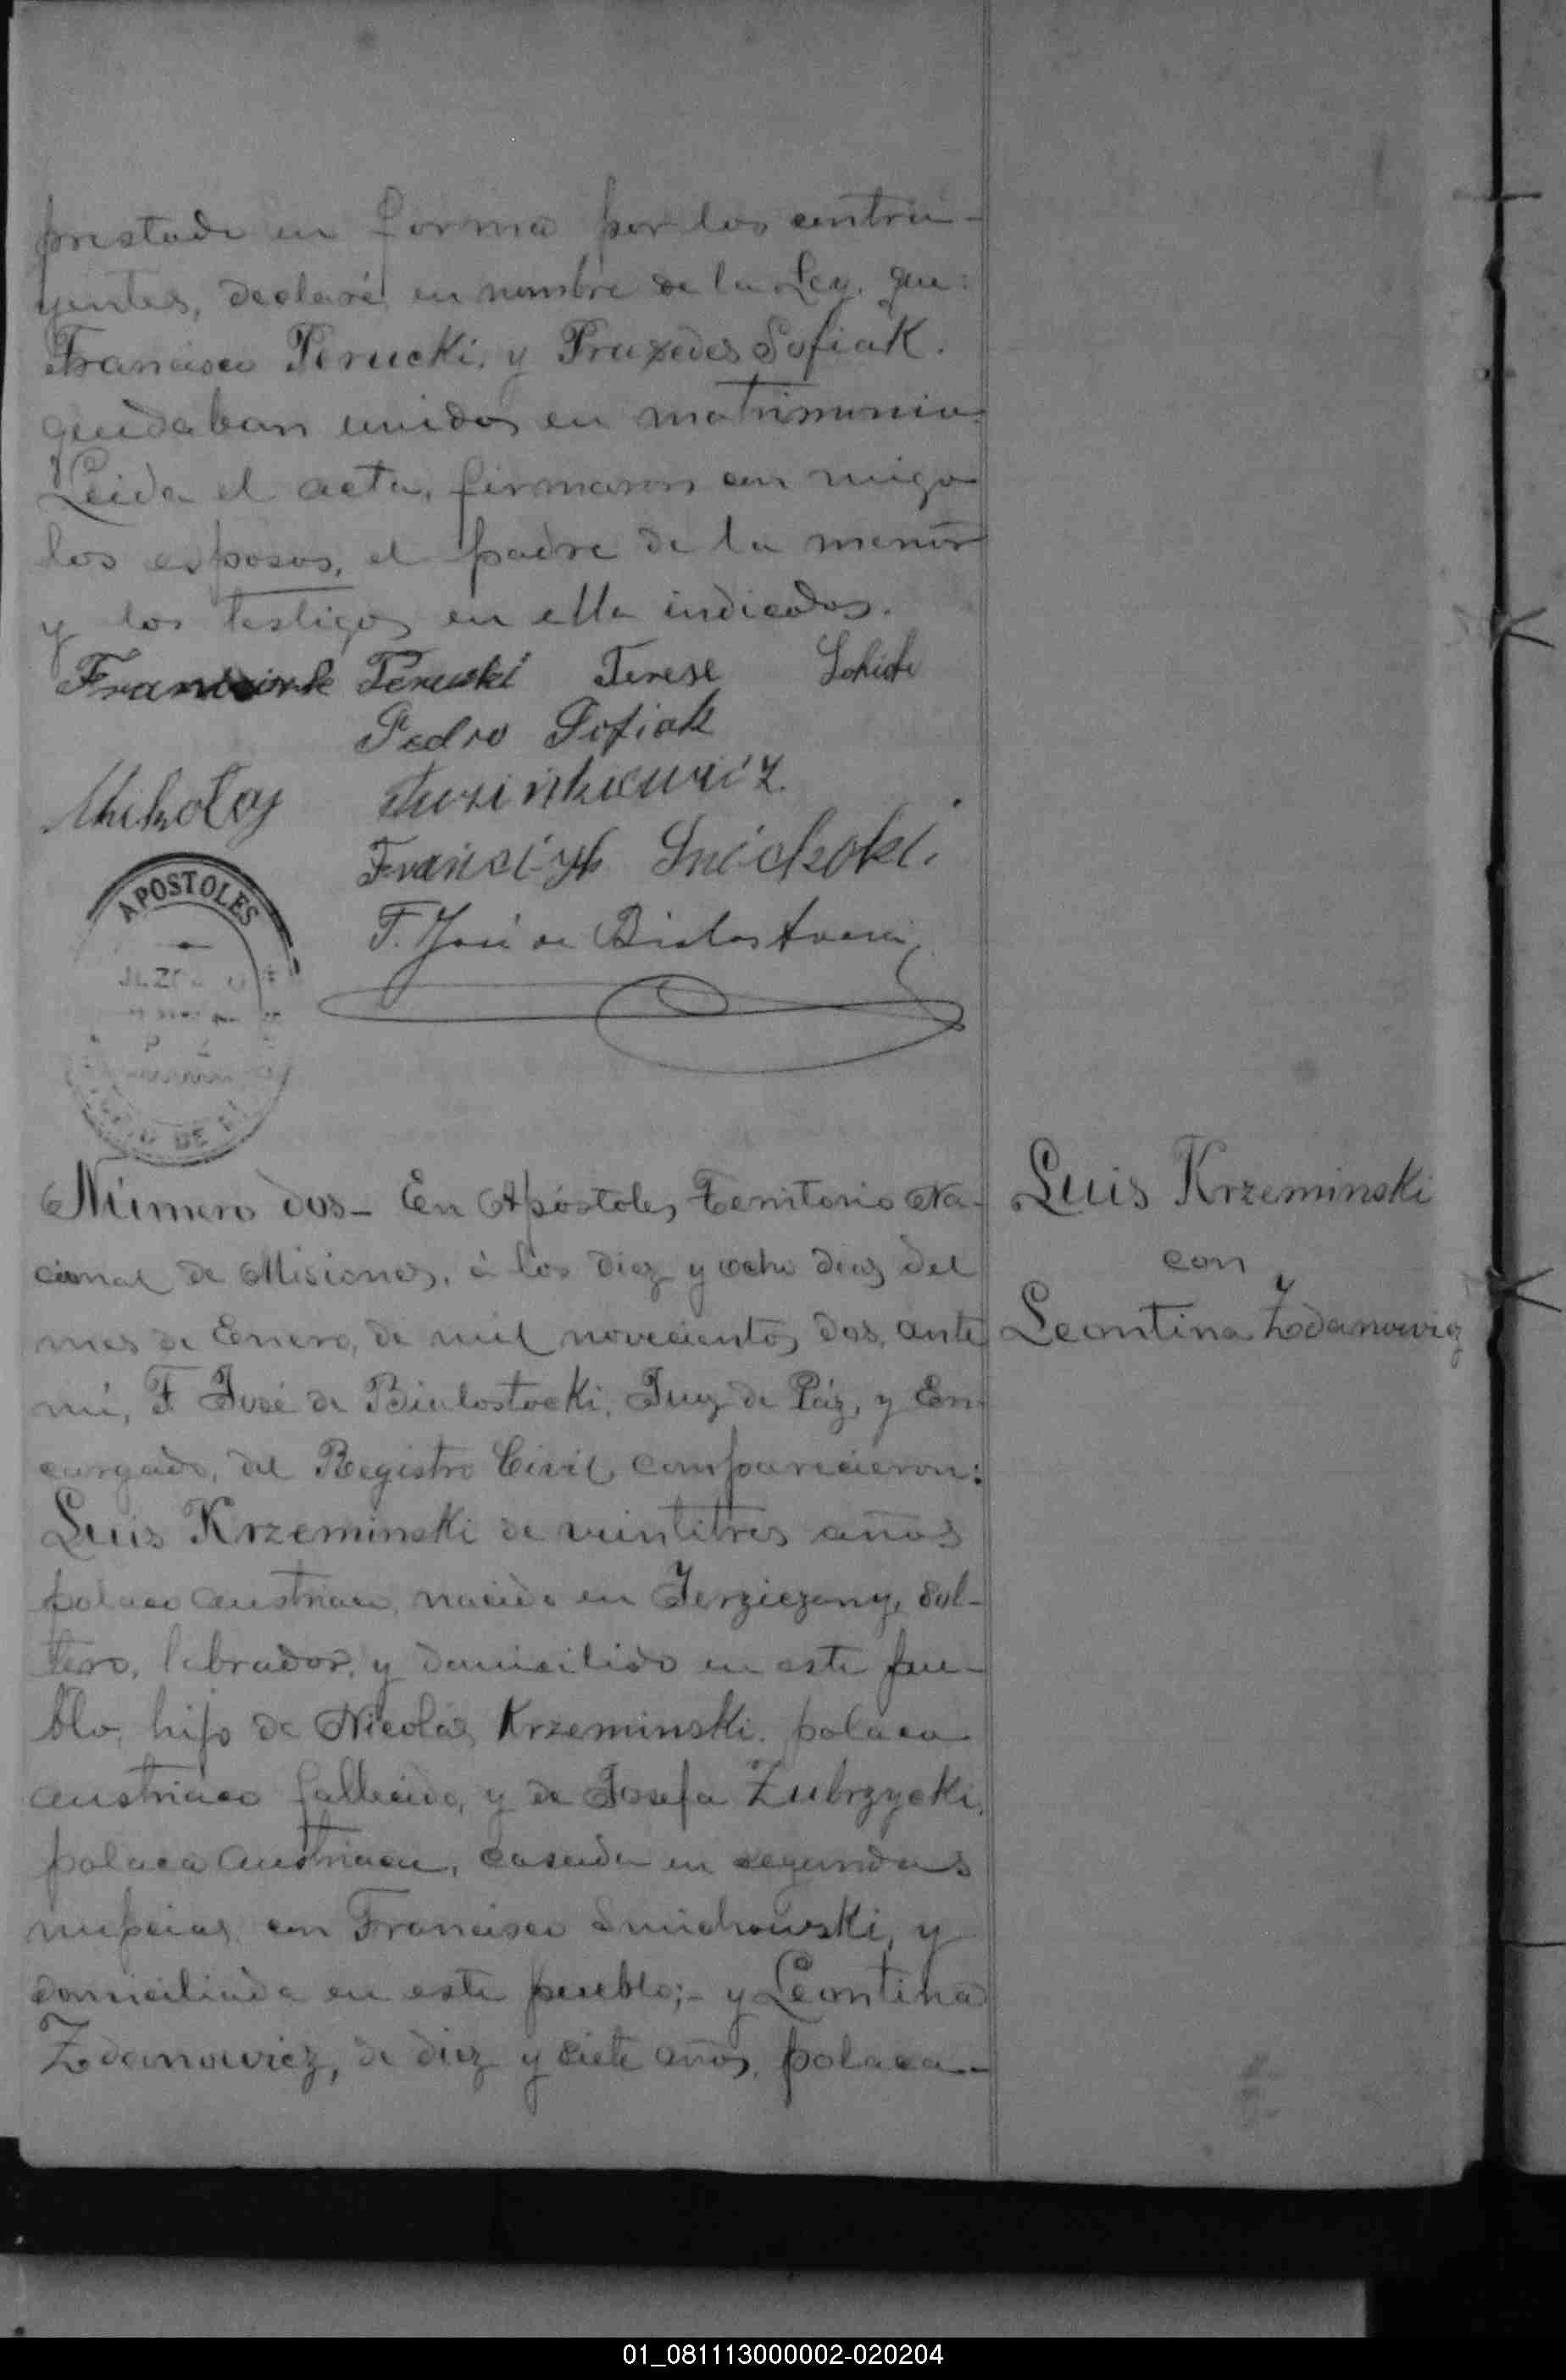 prestado en forma por los contra-
yentes, declaré en nombre de la Ley, que:
Francisco Perucki, y Praxedes Sofiak.
quedaban unidos en matrimonio.
Leida el acta, firmaron con migo
los esposos, el padre de la menor
y los testigos en ella indicados.
Peruski Terese
Pedro Sofiak
Mikołaj
F. José de Bialostocki
APOSTOLES
Número dos- En Apóstoles, Territorio Na-
cional de Misiones, á los diez y ocho dias del
mes de Enero, de mil novecientos dos, ante
mí, F. José de Bialostocki, Juez de Páz, y En-
cargado, del Registro Civil, comparecieron:
Luis Krzeminski de veintitres años
polaco austriaco, nacido en Jerziezany, sol-
tero, labrador, y domicilido en este pue-
blo, hijo de Nicolás Krzeminski, polaco
austriaco fallecido, y de Josefa Zubrzycki,
polaca austriaca, casada en segundas
nupcias con Francisco Smichowski, y
domiciliada en este pueblo;- y Leontina
Zdanowicz, de diez y siete años, polaca-
Luis Krzeminski
con
Leontina Zdanowicz
01_081113000002-020204